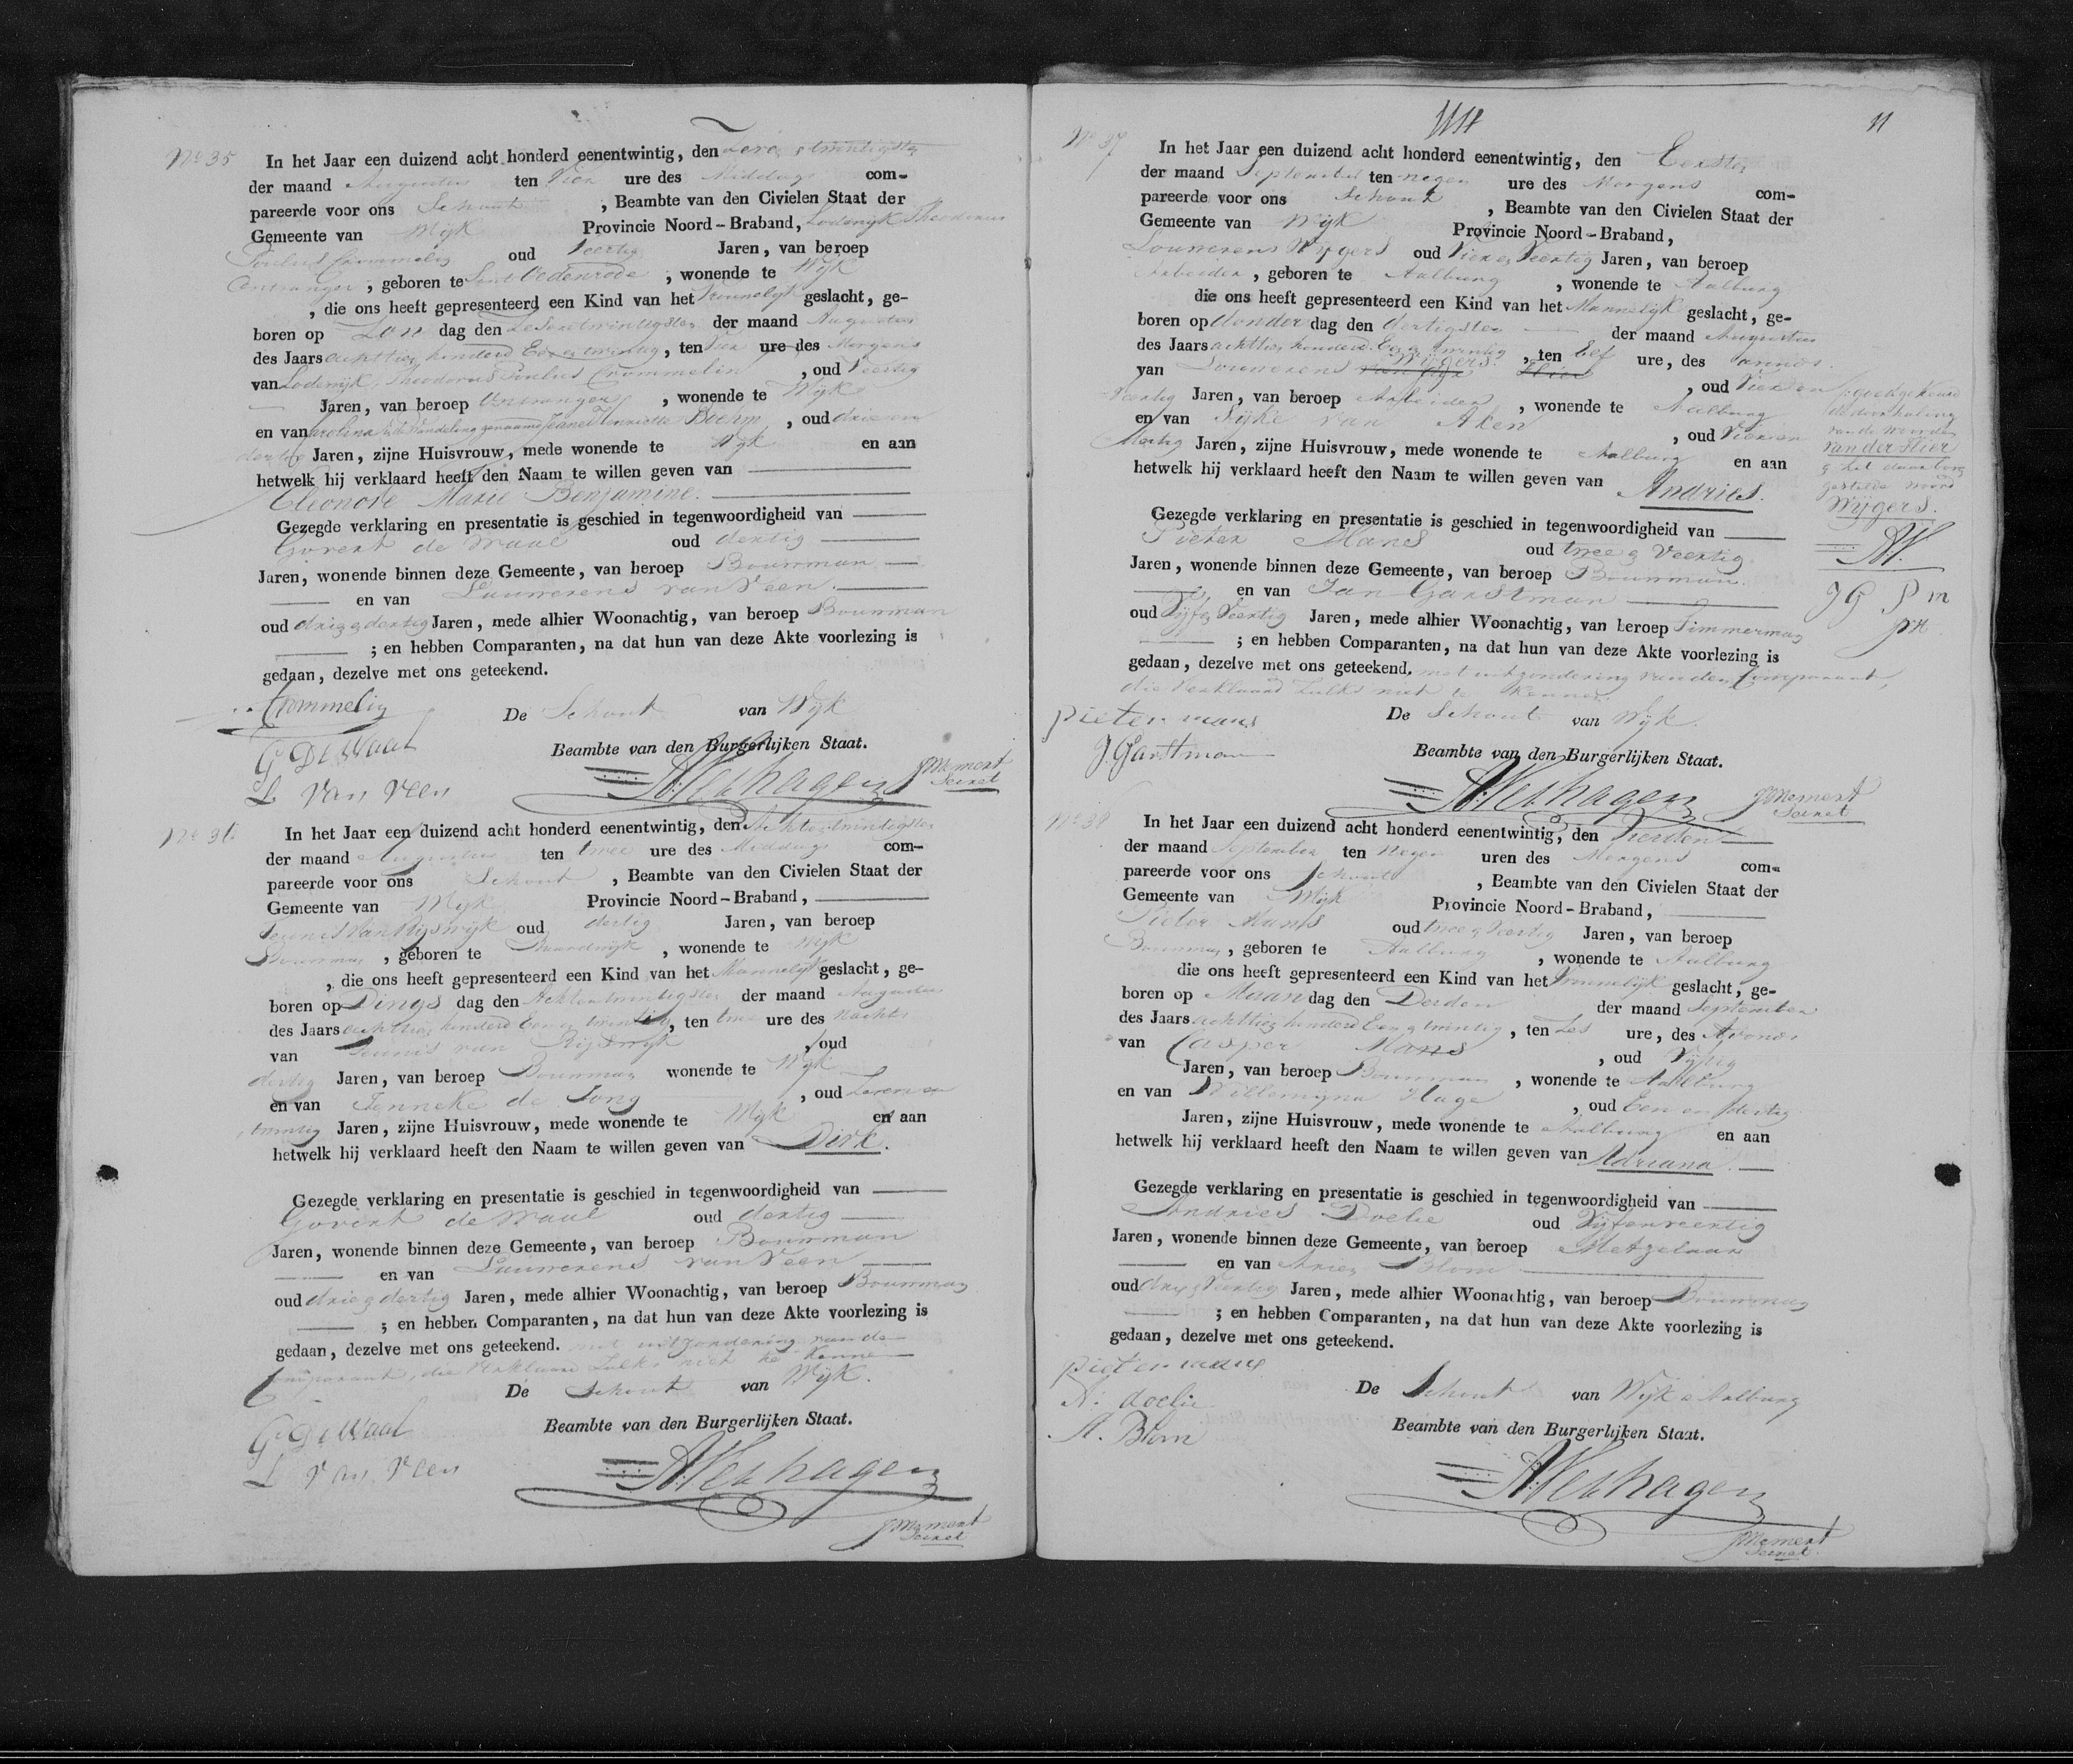 No 35
In het Jaar een duizend acht honderd eenentwintig, den Zeven en twintigsten
der maand Augustus ten Vier ure des Middags com-
pareerde voor ons Schout , Beambte van den Civielen Staat der
Gemeente van Wijk Provincie Noord-Braband, Lodewijk Theodorus
Paulus Crommelin oud Veertig Jaren, van beroep
Ontvanger , geboren te Sint Oedenrode , wonende te Wijk
, die ons heeft gepresenteerd een Kind van het Vrouwelijk geslacht, ge-
boren op Zon dag den Zesentwintigsten der maand Augustus
des Jaars achttien honderd Een en twintig, ten Vier ure des Morgens
van Lodewijk Theodorus Paulus Crommelin , oud Veertig
Jaren, van beroep Ontvanger , wonende te Wijk
en van Carolina in de wandeling genaamd Jeanet Henriette Boehm , oud drie en
dertig Jaren, zijne Huisvrouw, mede wonende te Wijk en aan
hetwelk hij verklaard heeft den Naam te willen geven van
Eleonore Marie Benjamine.
Gezegde verklaring en presentatie is geschied in tegenwoordigheid van
Govert de Waal oud dertig
Jaren, wonende binnen deze Gemeente, van beroep Bouwman
en van Lauwerens van Veen
oud drie en dertig Jaren, mede alhier Woonachtig, van beroep Bouwman
; en hebben Comparanten, na dat hun van deze Akte voorlezing is
gedaan, dezelve met ons geteekend.
Crommelin
De Schout van Wijk
G De Waal
Beambte van den Burgerlijken Staat.
L. van Veen
A Verhagen
Secret
No 36
In het Jaar een duizend acht honderd eenentwintig, den Achtentwintigsten
der maand Augustus ten twee ure des Middags com-
pareerde voor ons Schout , Beambte van den Civielen Staat der
Gemeente van Wijk Provincie Noord-Braband,
Teunis van Rijswijk oud dertig Jaren, van beroep
Bouwman , geboren te Baardwijk , wonende te Wijk
, die ons heeft gepresenteerd een Kind van het Mannelijk geslacht, ge-
boren op Dings dag den Achtentwintigsten der maand Augustus
des Jaars achttien honderd Een en twintig, ten twee ure des Nachts
van Teunis van Rijswijk , oud
dertig Jaren, van beroep Bouwman wonende te Wijk
en van Jenneke de Jong , oud Zeven en
twintig Jaren, zijne Huisvrouw, mede wonende te Wijk en aan
hetwelk hij verklaard heeft den Naam te willen geven van Dirk.
Gezegde verklaring en presentatie is geschied in tegenwoordigheid van
Govert de Waal oud dertig
Jaren, wonende binnen deze Gemeente, van beroep Bouwman
en van Lauwerens van Veen
oud drie en dertig Jaren, mede alhier Woonachtig, van beroep Bouwman
; en hebben Comparanten, na dat hun van deze Akte voorlezing is
gedaan, dezelve met ons geteekend. met uitzondering van de
Comparant, die verklaard zulks niet te kennen
De Schout van Wijk.
G De Waal
Beambte van den Burgerlijken Staat.
L van Veen
A Verhagen
Secret
11
No 37
In het Jaar een duizend acht honderd eenentwintig, den Eersten
der maand September ten negen ure des Morgens com-
pareerde voor ons Schout , Beambte van den Civielen Staat der
Gemeente van Wijk Provincie Noord-Braband,
Louwerens Wijgers oud Vier en Veertig Jaren, van beroep
Arbeider , geboren te Aalburg , wonende te Aalburg
die ons heeft gepresenteerd een Kind van het Mannelijk geslacht, ge-
boren op donder dag den dertigsten der maand Augustus
des Jaars achttien honderd Een en twintig , ten Elf ure, des avonds
van Louwerens van der Stier Wijgers , oud Vier en
Veertig Jaren, van beroep Arbeider , wonende te Aalburg
en van Sijke van Aken , oud Vier en
dertig Jaren, zijne Huisvrouw, mede wonende te Aalburg en aan
hetwelk hij verklaard heeft den Naam te willen geven van Andries.
goedgekeurd
de doorhaling
van de woorden
van der Stier
en het daar boven
gestelde woord
Wijgers.
AV.
JG P m
Gezegde verklaring en presentatie is geschied in tegenwoordigheid van
Pieter Mans oud twee en Veertig
Jaren, wonende binnen deze Gemeente, van beroep Bouwman.
en van Jan Garstman
oud Vijf en Veertig Jaren, mede alhier Woonachtig, van beroep Timmerman
; en hebben Comparanten, na dat hun van deze Akte voorlezing is
gedaan, dezelve met ons geteekend. met uitzondering van den Comparant,
die Verklaard Zulks niet te Kennen
pieter mans
De Schout van Wijk.
J. Garstman
Beambte van den Burgerlijken Staat.
A Verhagen
Secret
No 38
In het Jaar een duizend acht honderd eenentwintig, den Vierden
der maand September ten Negen uren des Morgens com-
pareerde voor ons Schout , Beambte van den Civielen Staat der
Gemeente van Wijk Provincie Noord-Braband,
Pieter Mans oud twee en Veertig Jaren, van beroep
Bouwman , geboren te Aalburg , wonende te Aalburg
die ons heeft gepresenteerd een Kind van het Vrouwelijk geslacht, ge-
boren op Maan dag den Derden der maand September
des Jaars achttien honderd Een en twintig , ten Zes ure, des Avonds
van Casper Mans , oud Vijftig
Jaren, van beroep Bouwman , wonende te Aalburg
en van Willemijna Hage , oud Een en dertig
Jaren, zijne Huisvrouw, mede wonende te Aalburg en aan
hetwelk hij verklaard heeft den Naam te willen geven van Adriana.
Gezegde verklaring en presentatie is geschied in tegenwoordigheid van
Andries Doelie oud Vijfenveertig
Jaren, wonende binnen deze Gemeente, van beroep Metzelaar
en van Arie Blom
oud drie en Veertig Jaren, mede alhier Woonachtig, van beroep Bouwman
; en hebben Comparanten, na dat hun van deze Akte voorlezing is
gedaan, dezelve met ons geteekend.
pieter mans
De Schout van Wijk & Aalburg
A: doelie
Beambte van den Burgerlijken Staat.
A. Blom
A Verhagen
Secret